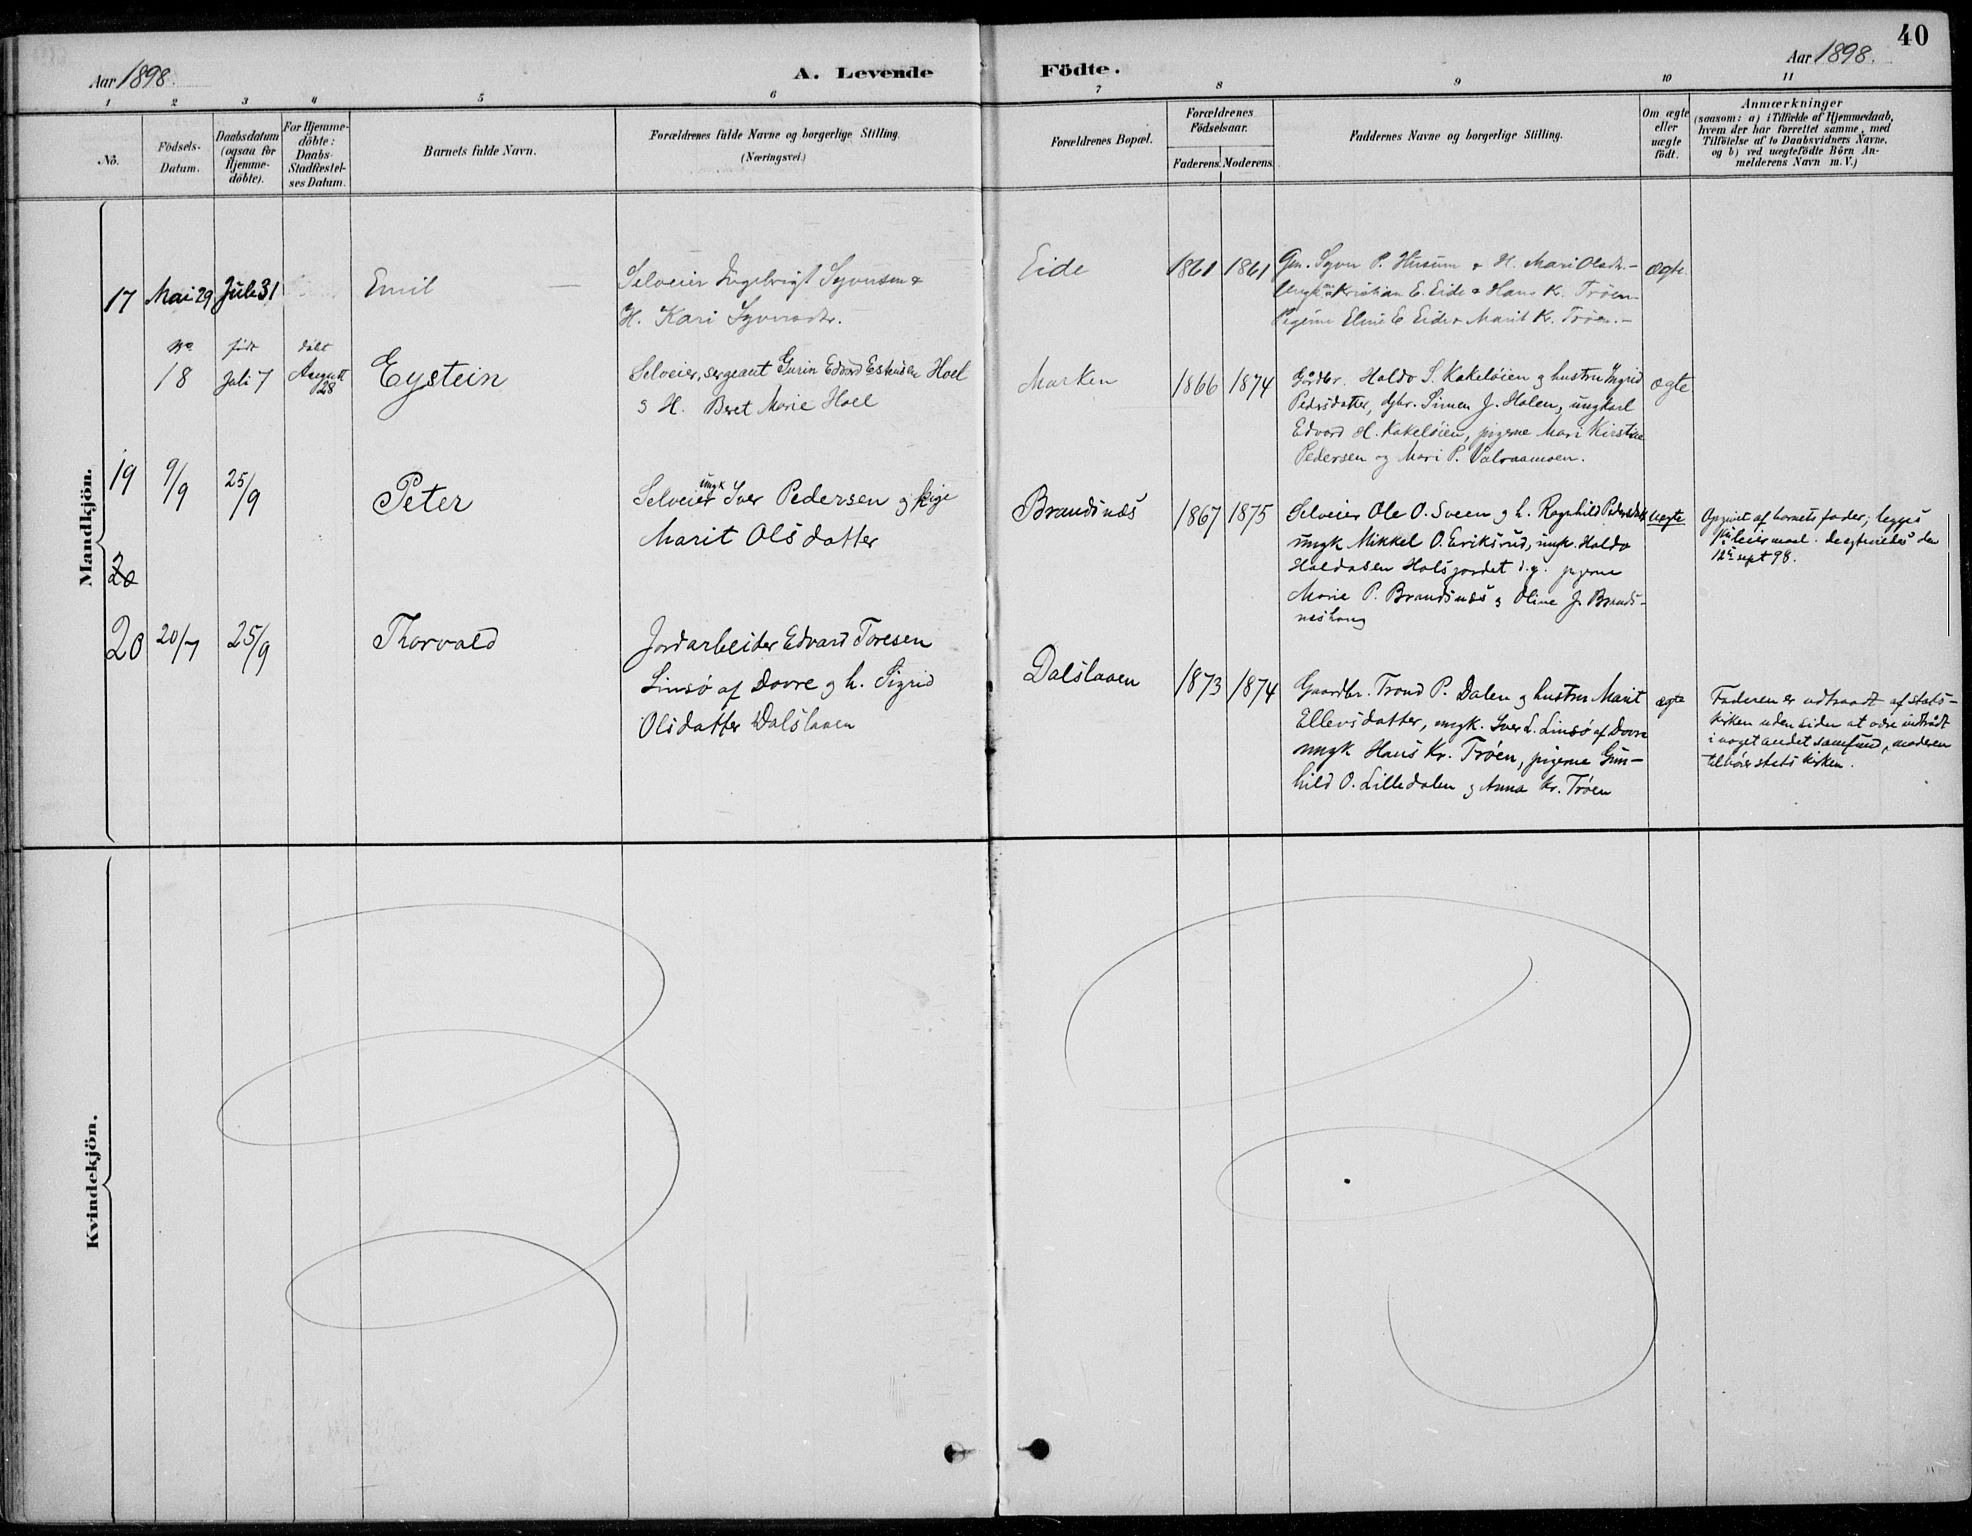 40
Aar 1898.
A. Levende Födte.
Aar 1898.
1 2 3 4 5 6 7 8 9 10 11
No.
Födsels-Datum.
Daabsdatum (ogsaa for Hjemme-döbte).
For Hjemme-döbte: Daabs-Stadfæstel-ses Datum.
Barnets fulde Navn.
Forældrenes fulde Navne og borgerlige Stilling.
(Næringsvei.)
Forældrenes Bopæl.
Forældrenes Födselsaar.
Faderens. Moderens.
Faddernes Navne og borgerlige Stilling.
Om ægte eller uægte födt.
Anmærkninger
(saasom: a) i Tilfælde af Hjemmedaab,
hvem der har forrettet samme, med
Tilföielse af to Daabsvidners Navne,
og b) ved uægtefödte Börn An-
melderens Navn m. V.)
Mandkjön.
17 Mai 29 Juli 31
Emil
Selveier Ingebrigt Syversen &
H. Kari Syversdtr.
Eide
1861 1861
Gm. Syver P. Husum & H. Mari Olsdtr.-
Ungkm Kristian E. Eide & Hans Kr. Trøen-
Pigerne Eline E Eide & Marit Kr. Trøen.-
ægte
No født døbt
18 Juli 7 August 28
Eystein
Selveier, sergeant Edvard Hoel
og H. Beret Marie Hoel
Marken
1866 1874
Gårdbr. Haldo S. Kakeløien og hustru Ingrid
Pedersdatter, gbr. Simen J. Holen, ungkarl
Edvard H. Kakeløien, pigerne Mari Kirstine
Pedersen og Mari P. Valraamoen.
ægte
19 9/9 25/9
Peter
Selveier ungk Iver Pedersen og pige
Marit Olsdatter
Brandsnæs
1867 1875
Selveier Ole O. Sveen og h. Ragnhild Pedersdatter
ungk Mikkel O. Eriksrud, ungk. Haldo
Haldosen Holsjordet d.y. pigerne
Marie P. Brandsnæs og Oline J. Brands-
neshaug
uægte
Opgivet af barnets fader;
leiermaal. den
12te sept 98.
20
20 20/7 25/9
Thorvald
Jordarbeider Edvard Toresen
Linsø af Dovre og h. Sigrid
Olsdatter Dalslaaen
Dalslaaen
1873 1874
Gaardbr. Trond P. Dalen og hustru Marit
Ellevsdatter, ungk. Iver L. Linsø af Dovre
ungk Hans Kr. Trøen, pigerne Gun-
hild O. Lilledalen og Anna Kr. Trøen
ægte
Faderen er udtraadt af stats-
kirken uden siden at være indtrådt
i noget andet samfund, moderen
tilhører statskirken.
Kvindekjön.